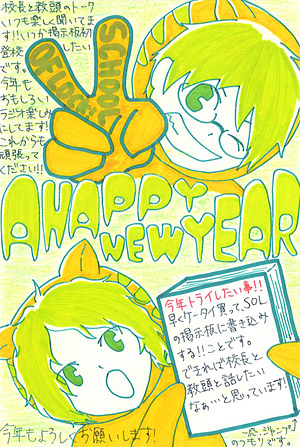 校長と教頭のトーク
いつも楽しく聞いてま
す!!いつか掲示板初
登校したい
です。
今年も
おもしろい
ラジオ楽しみ
にしてます!
これからも
頑張って
ください!!
SCHOOL
OF LOCK!
A HAPPY
NEW YEAR
今年トライしたい事!!
早くケータイ買って、SOL
の掲示板に書き込み
する!!ことです。
できれば校長と
教頭と話したい
なぁ…と思っています!
一応、ジャンプ
のつもりです。
今年もよろしくお願いします!